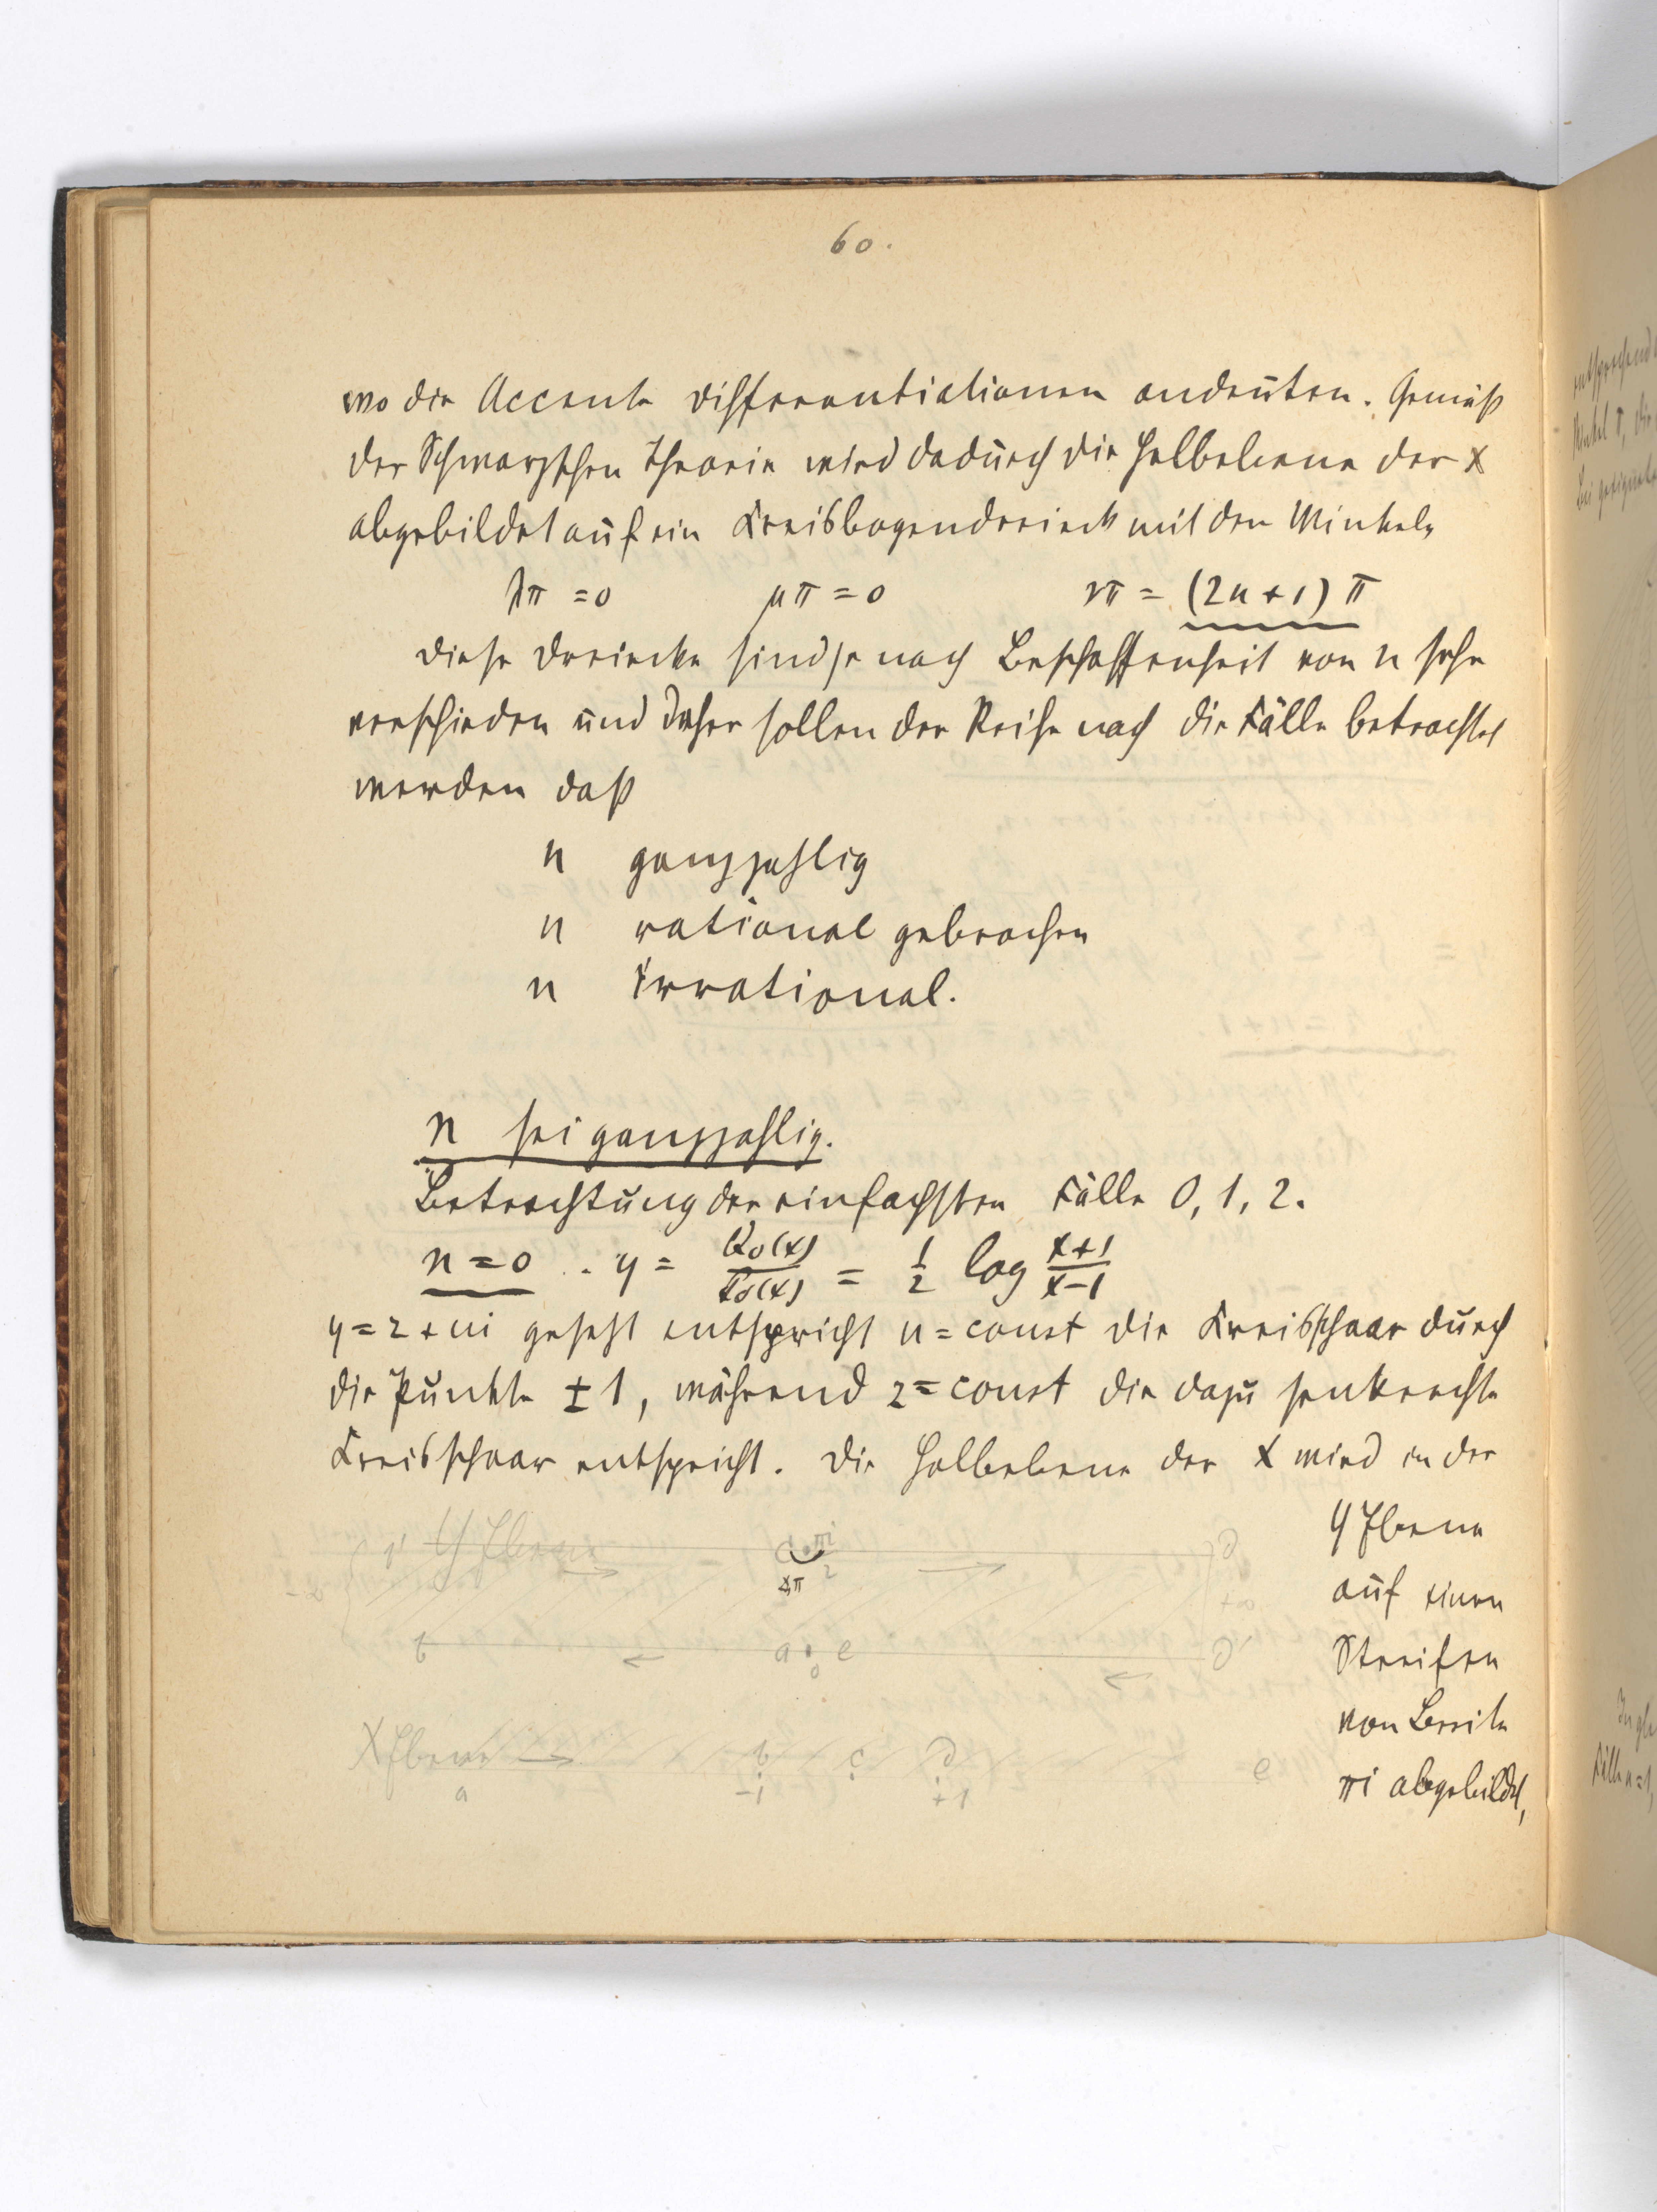 60.
wo die Accente Differentiationen andeuten. Gemäß
der Schwarzschen Theorie wird dadurch die Halbebene der x
abgebildet auf ein Kreisbogendreieck mit den Winkeln
λπ = 0 μπ = 0 νπ = (2n+1)π
Diese Dreiecke sind je nach Beschaffenheit von n sehr
verschieden und daher sollen der Reihe nach die Fälle betrachtet
werden daß
n ganzzahlig
n rational gebrochen
n irrational.
n sei ganzzahlig.
Betrachtung der einfachsten Fälle 0, 1, 2.
n = 0 . y = Q₀(x)/P₀(x) = 1/2 log (x+1)/(x-1)
y = z + ui gesetzt entspricht u = const die Kreisschaar durch
die Punkte ± 1, während z = const die dazu senkrechte
Kreisschaar entspricht. Die Halbebene der x wird in der
y Ebene
auf einen
Streifen
von Breite
πi abgebildet,
y Ebene
c πi/2
d
-∞
π
+∞
b a e d'
0
X Ebene b c d e
a -1 +1